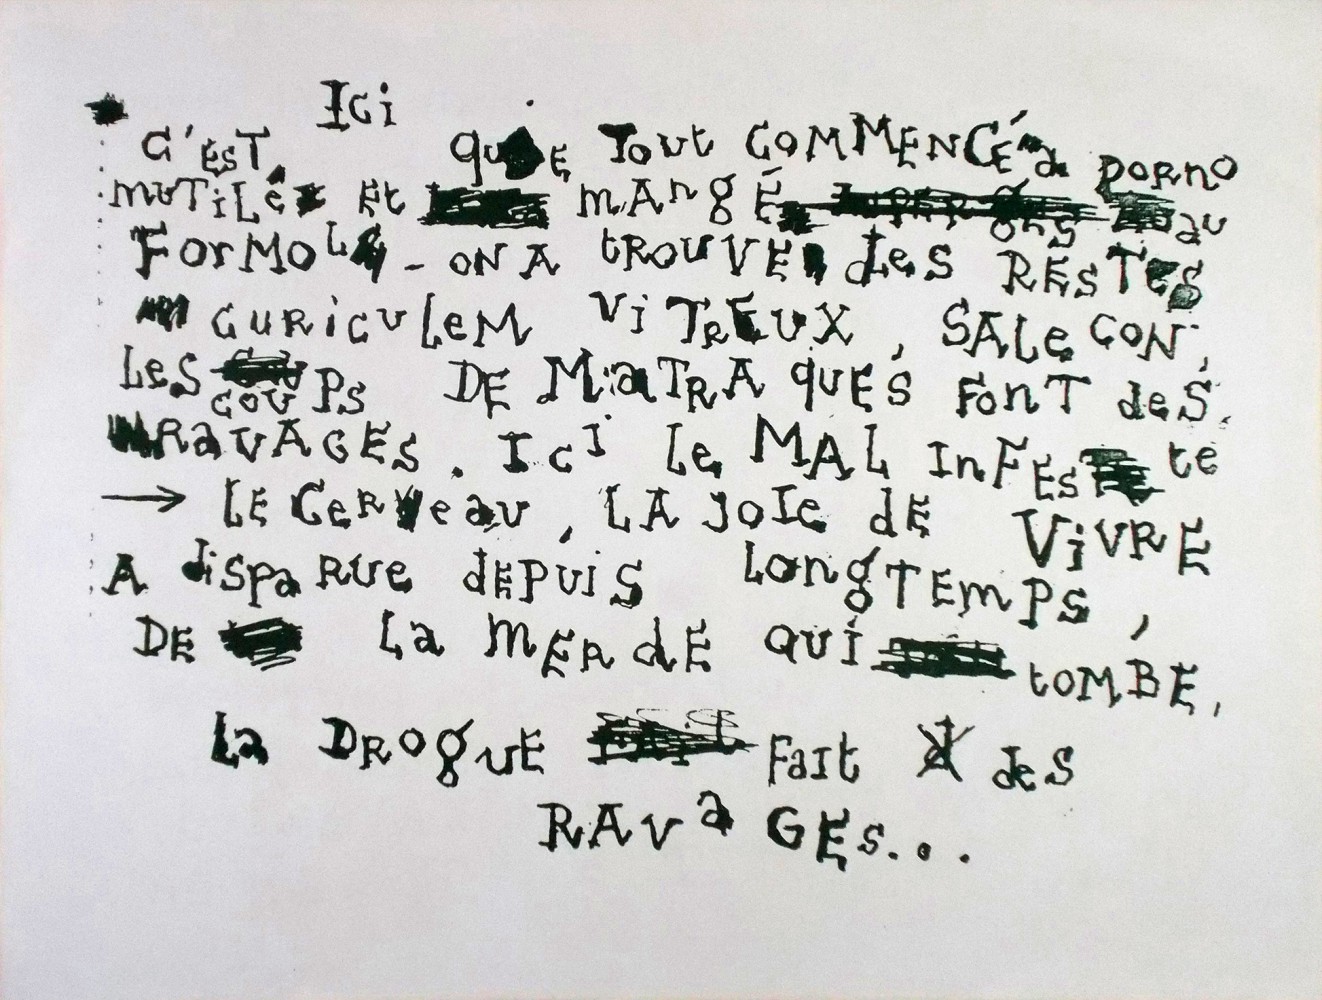 Ici
C'EST QUE TOUT COMMENCÉ a PORNO
MUTILÉ Et MANgÉ au
FORMOLE - ON A tROUVE des RESTES
CURICULEM ViTREUX, SALE CON,
LES COUPS DE MaTRAqUES FONT deS
RAVAGES. ICI Le MAL INFESte
→ LE CERVeau, LA JOIE de ViVRE
A dispaRUe dEPUiS LONgTEMPS,
DE La MERdE QUi tOMBE,
La DROgUE Fait des
RAVaGES...